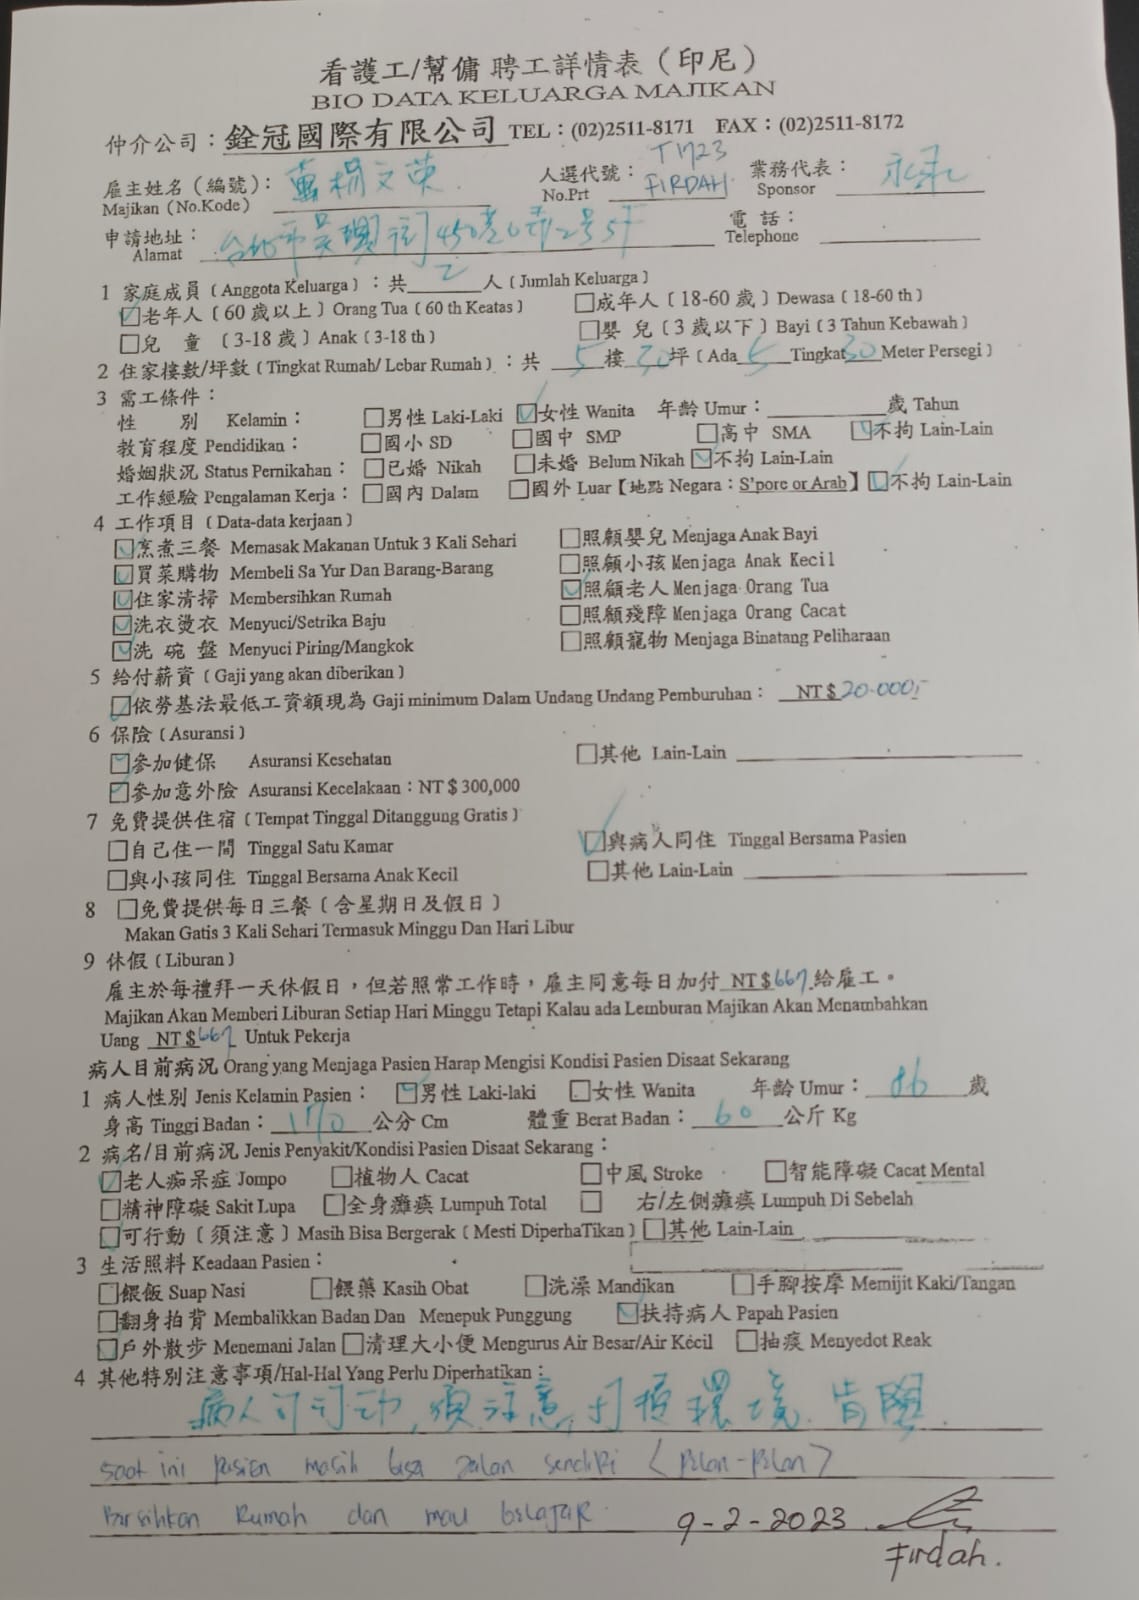 看護工/幫傭 聘工詳情表（印尼）
BIO DATA KELUARGA MAJIKAN
仲介公司：銓冠國際有限公司 TEL：(02)2511-8171 FAX：(02)2511-8172
雇主姓名（編號）： 楊文英 人選代號： T1723 業務代表：
Majikan (No.Kode) No.Prt FIRDAH Sponsor
申請地址： 台北市吳興街450巷 電話：
Alamat Telephone
1 家庭成員〔Anggota Keluarga〕：共 2 人〔Jumlah Keluarga〕
☑老年人〔60歲以上〕Orang Tua〔60 th Keatas〕 □成年人〔18-60歲〕Dewasa〔18-60 th〕
□兒 童〔3-18歲〕Anak〔3-18 th〕 □嬰 兒〔3歲以下〕Bayi〔3 Tahun Kebawah〕
2 住家樓數/坪數〔Tingkat Rumah/ Lebar Rumah〕：共 5 樓 30 坪〔Ada 5 Tingkat 30 Meter Persegi〕
3 需工條件：
性 別 Kelamin： □男性 Laki-Laki ☑女性 Wanita 年齡 Umur： 歲 Tahun
教育程度 Pendidikan： □國小 SD □國中 SMP □高中 SMA ☑不拘 Lain-Lain
婚姻狀況 Status Pernikahan： □已婚 Nikah □未婚 Belum Nikah ☑不拘 Lain-Lain
工作經驗 Pengalaman Kerja： □國內 Dalam □國外 Luar【地點 Negara：S'pore or Arab】☑不拘 Lain-Lain
4 工作項目〔Data-data kerjaan〕
☑烹煮三餐 Memasak Makanan Untuk 3 Kali Sehari □照顧嬰兒 Menjaga Anak Bayi
☑買菜購物 Membeli Sa Yur Dan Barang-Barang □照顧小孩 Menjaga Anak Kecil
☑住家清掃 Membersihkan Rumah ☑照顧老人 Menjaga Orang Tua
☑洗衣燙衣 Menyuci/Setrika Baju □照顧殘障 Menjaga Orang Cacat
☑洗 碗 盤 Menyuci Piring/Mangkok □照顧寵物 Menjaga Binatang Peliharaan
5 給付薪資〔Gaji yang akan diberikan〕
☑依勞基法最低工資額現為 Gaji minimum Dalam Undang Undang Pemburuhan： NT$ 20.000,-
6 保險〔Asuransi〕
☑參加健保 Asuransi Kesehatan □其他 Lain-Lain
☑參加意外險 Asuransi Kecelakaan：NT$ 300,000
7 免費提供住宿〔Tempat Tinggal Ditanggung Gratis〕
□自己住一間 Tinggal Satu Kamar ☑與病人同住 Tinggal Bersama Pasien
□與小孩同住 Tinggal Bersama Anak Kecil □其他 Lain-Lain
8 □免費提供每日三餐〔含星期日及假日〕
Makan Gatis 3 Kali Sehari Termasuk Minggu Dan Hari Libur
9 休假〔Liburan〕
雇主於每禮拜一天休假日，但若照常工作時，雇主同意每日加付 NT$ 667 給雇工。
Majikan Akan Memberi Liburan Setiap Hari Minggu Tetapi Kalau ada Lemburan Majikan Akan Menambahkan
Uang NT$ 667 Untuk Pekerja
病人目前病況 Orang yang Menjaga Pasien Harap Mengisi Kondisi Pasien Disaat Sekarang
1 病人性別 Jenis Kelamin Pasien： ☑男性 Laki-laki □女性 Wanita 年齡 Umur： 86 歲
身高 Tinggi Badan： 170 公分 Cm 體重 Berat Badan： 60 公斤 Kg
2 病名/目前病況 Jenis Penyakit/Kondisi Pasien Disaat Sekarang：
☑老人痴呆症 Jompo □植物人 Cacat □中風 Stroke □智能障礙 Cacat Mental
□精神障礙 Sakit Lupa □全身癱瘓 Lumpuh Total □ 右/左側癱瘓 Lumpuh Di Sebelah
☑可行動〔須注意〕Masih Bisa Bergerak〔Mesti DiperhaTikan〕□其他 Lain-Lain
3 生活照料 Keadaan Pasien：
□餵飯 Suap Nasi □餵藥 Kasih Obat □洗澡 Mandikan □手腳按摩 Memijit Kaki/Tangan
□翻身拍背 Membalikkan Badan Dan Menepuk Punggung ☑扶持病人 Papah Pasien
☑戶外散步 Menemani Jalan □清理大小便 Mengurus Air Besar/Air Kecil □抽痰 Menyedot Reak
4 其他特別注意事項/Hal-Hal Yang Perlu Diperhatikan：
病人可行動,須注意, 環境.肯學.
Saat ini pasien masih bisa Jalan sendiri (Plan-Plan)
Bersihkan Rumah dan mau belajar. 9-2-2023
Firdah.